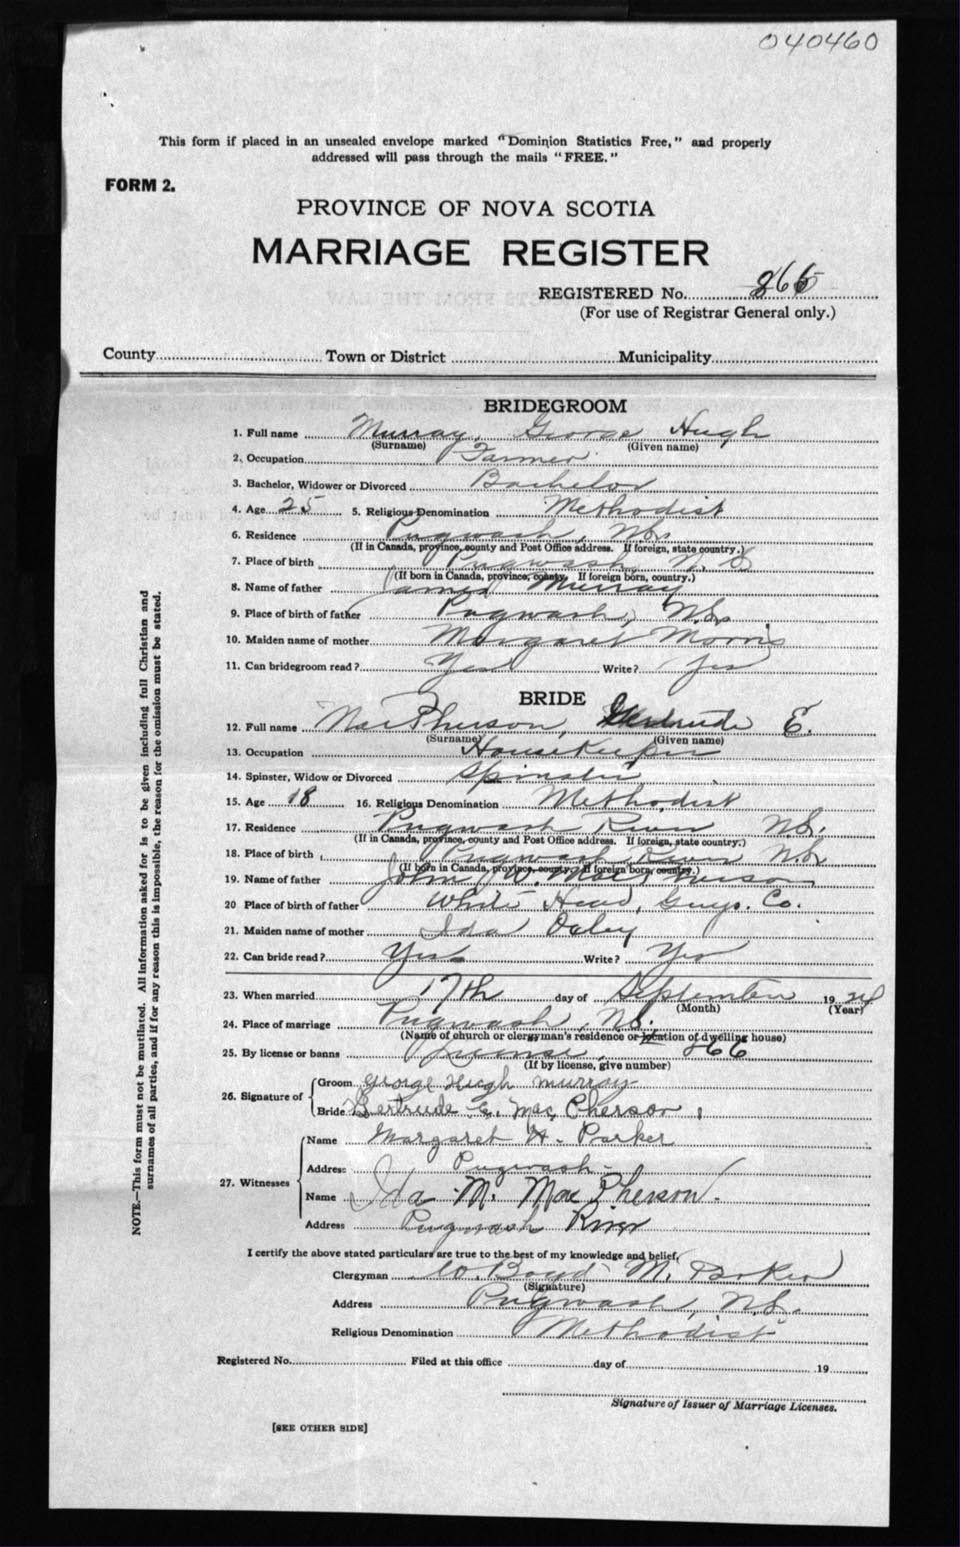 040460
This form if placed in an unsealed envelope marked "Dominion Statistics Free," and properly
addressed will pass through the mails "FREE."
FORM 2.
PROVINCE OF NOVA SCOTIA
MARRIAGE REGISTER
REGISTERED No. 866
(For use of Registrar General only.)
County Town or District Municipality
BRIDEGROOM
1. Full name Murray, George Hugh
(Surname) (Given name)
2, Occupation Farmer
3. Bachelor, Widower or Divorced Bachelor
4. Age 25 5. Religious Denomination Methodist
6. Residence Pugwash, N.S.
(If in Canada, province, county and Post Office address. If foreign, state country.)
7. Place of birth Pugwash, N.S
(If born in Canada, province, county. If foreign born, country.)
8. Name of father James Murray
9. Place of birth of father Pugwash, N.S.
10. Maiden name of mother Margaret Morris
11. Can bridegroom read? Yes Write? Yes
BRIDE
12. Full name MacPherson, Gertrude E.
(Surname) (Given name)
13. Occupation Housekeeper
14. Spinster, Widow or Divorced Spinster
15. Age 18 16. Religious Denomination Methodist
17. Residence Pugwash River N.S.
(If in Canada, province, county and Post Office address. If foreign, state country.)
18. Place of birth Pugwash River N.S.
(If born in Canada, province, county. If foreign born, country.)
19. Name of father John W. MacPherson
20 Place of birth of father White Head, Guys. Co.
21. Maiden name of mother Ida
22. Can bride read? Yes Write? Yes
23. When married 17th day of September 1924
(Month) (Year)
24. Place of marriage Pugwash, N.S.
(Name of church or clergyman's residence or location of dwelling house)
25. By license or banns License, 866
(If by license, give number)
26. Signature of Groom George Hugh Murray
Bride Gertrude E. MacPherson
27. Witnesses Name Margaret H. Parker
Address Pugwash
Name Ida M. MacPherson.
Address Pugwash River
I certify the above stated particulars are true to the best of my knowledge and belief,
Clergyman W. Boyd M.
(Signature)
Address Pugwash, N.S.
Religious Denomination Methodist
Registered No. Filed at this office day of 19
Signature of Issuer of Marriage Licenses.
[SEE OTHER SIDE]
NOTE.—This form must not be mutilated. All information asked for is to be given including full Christian and
surnames of all parties, and if for any reason this is impossible, the reason for the omission must be stated.